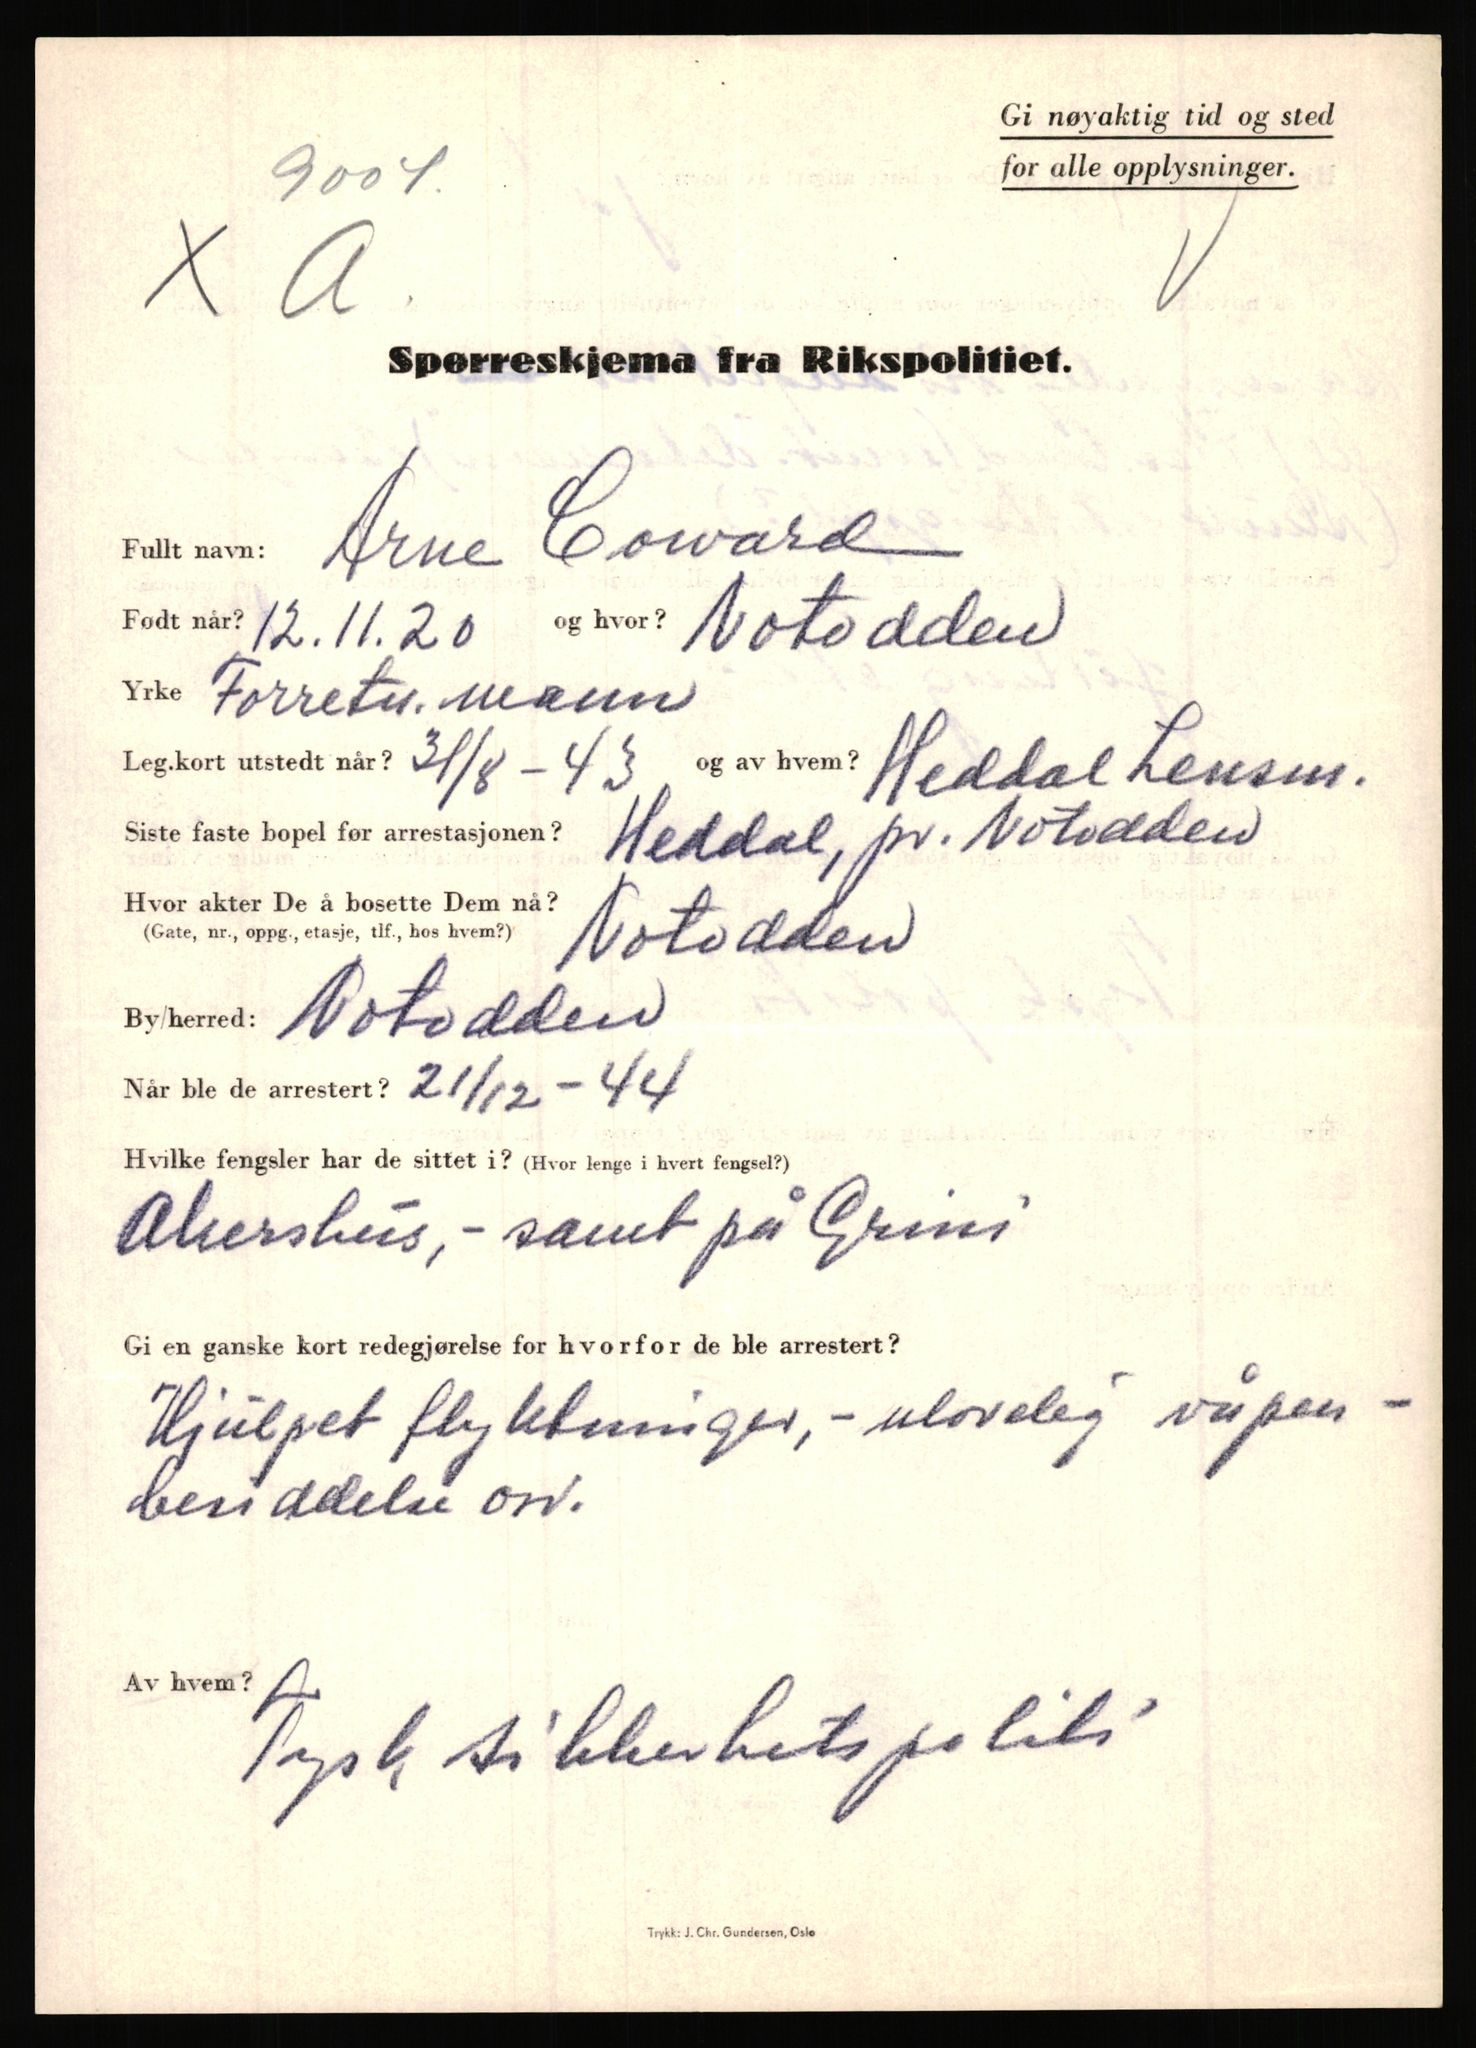 Gi nøyaktig tid og sted
for alle opplysninger.
X A.
Spørreskjema fra Rikspolitiet.
Fullt navn: Arne Coward
Født når? 12.11.20 og hvor? Notodden
Yrke Forretn. mann
Leg.kort utstedt når? 31/8 - 43 og av hvem? Heddal Lensm.
Siste faste bopel før arrestasjonen? Heddal, pr. Notodden
Hvor akter De å bosette Dem nå? Notodden
(Gate, nr., oppg., etasje, tlf., hos hvem?)
By/herred: Notodden
Når ble de arrestert? 21/12 - 44
Hvilke fengsler har de sittet i? (Hvor lenge i hvert fengsel?)
Akershus, - samt på Grini
Gi en ganske kort redegjørelse for hvorfor de ble arrestert?
Hjulpet flyktninger, - ulovelig våpen -
besiddelse osv.
Av hvem?
Tysk sikkerhetspoliti
Trykk: J. Chr. Gundersen, Oslo